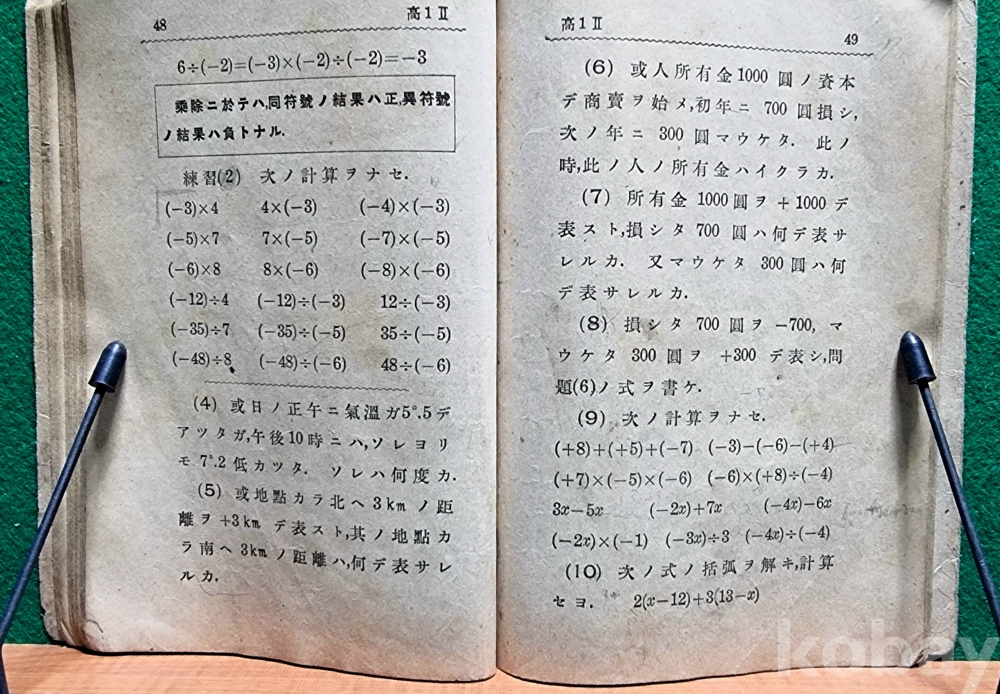 48
高1Ⅱ
6÷(−2)=(−3)×(−2)÷(−2)=−3
乘除ニ於テハ,同符號ノ結果ハ正,異符號
ノ結果ハ負トナル.
練習(2) 次ノ計算ヲナセ.
(−3)×4 4×(−3) (−4)×(−3)
(−5)×7 7×(−5) (−7)×(−5)
(−6)×8 8×(−6) (−8)×(−6)
(−12)÷4 (−12)÷(−3) 12÷(−3)
(−35)÷7 (−35)÷(−5) 35÷(−5)
(−48)÷8 (−48)÷(−6) 48÷(−6)
(4) 或日ノ正午ニ氣溫ガ5°.5デ
アツタガ,午後10時ニハ,ソレヨリ
モ7°.2低カツタ. ソレハ何度カ.
(5) 或地點カラ北ヘ3kmノ距
離ヲ+3kmデ表スト,其ノ地點カ
ラ南ヘ3kmノ距離ハ,何デ表サレ
ルカ.
高1Ⅱ
49
(6) 或人所有金1000圓ノ資本
デ商賣ヲ始メ,初年ニ700圓損シ,
次ノ年ニ300圓マウケタ. 此ノ
時,此ノ人ノ所有金ハイクラカ.
(7) 所有金1000圓ヲ+1000デ
表スト,損シタ700圓ハ何デ表サ
レルカ. 又マウケタ300圓ハ何
デ表サレルカ.
(8) 損シタ700圓ヲ−700, マ
ウケタ300圓ヲ+300デ表シ,問
題(6)ノ式ヲ書ケ.
(9) 次ノ計算ヲナセ.
(+8)+(+5)+(−7) (−3)−(−6)−(+4)
(+7)×(−5)×(−6) (−6)×(+8)÷(−4)
3x−5x (−2x)+7x (−4x)−6x
(−2x)×(−1) (−3x)÷3 (−4x)÷(−4)
(10) 次ノ式ノ括弧ヲ解キ,計算
セヨ. 2(x−12)+3(13−x)
kobay